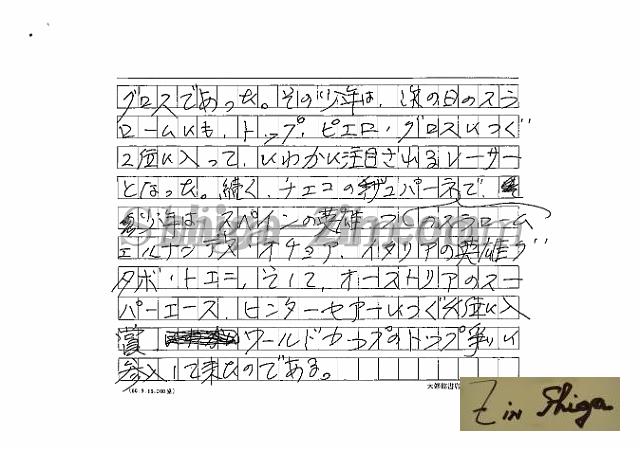 グロスであった。その少年は、次の日のスラ
ロームにも、トップ、ピエロ・グロスにつぐ
2位に入って、いわかに注目されるレーサー
となった。続く、チェコの ュパーネで、
少年は、スペインの英雄 スラローム
エルナンデス オチョア、イタリアの英雄グ
タボ・トエニ、そして、オーストリアのスー
パーエース、ヒンターセアーにつぐ 位に入
賞 ワールドカップのトップ争いに
参入して来たのである。
(66.9.15.200)
Z in Shiga